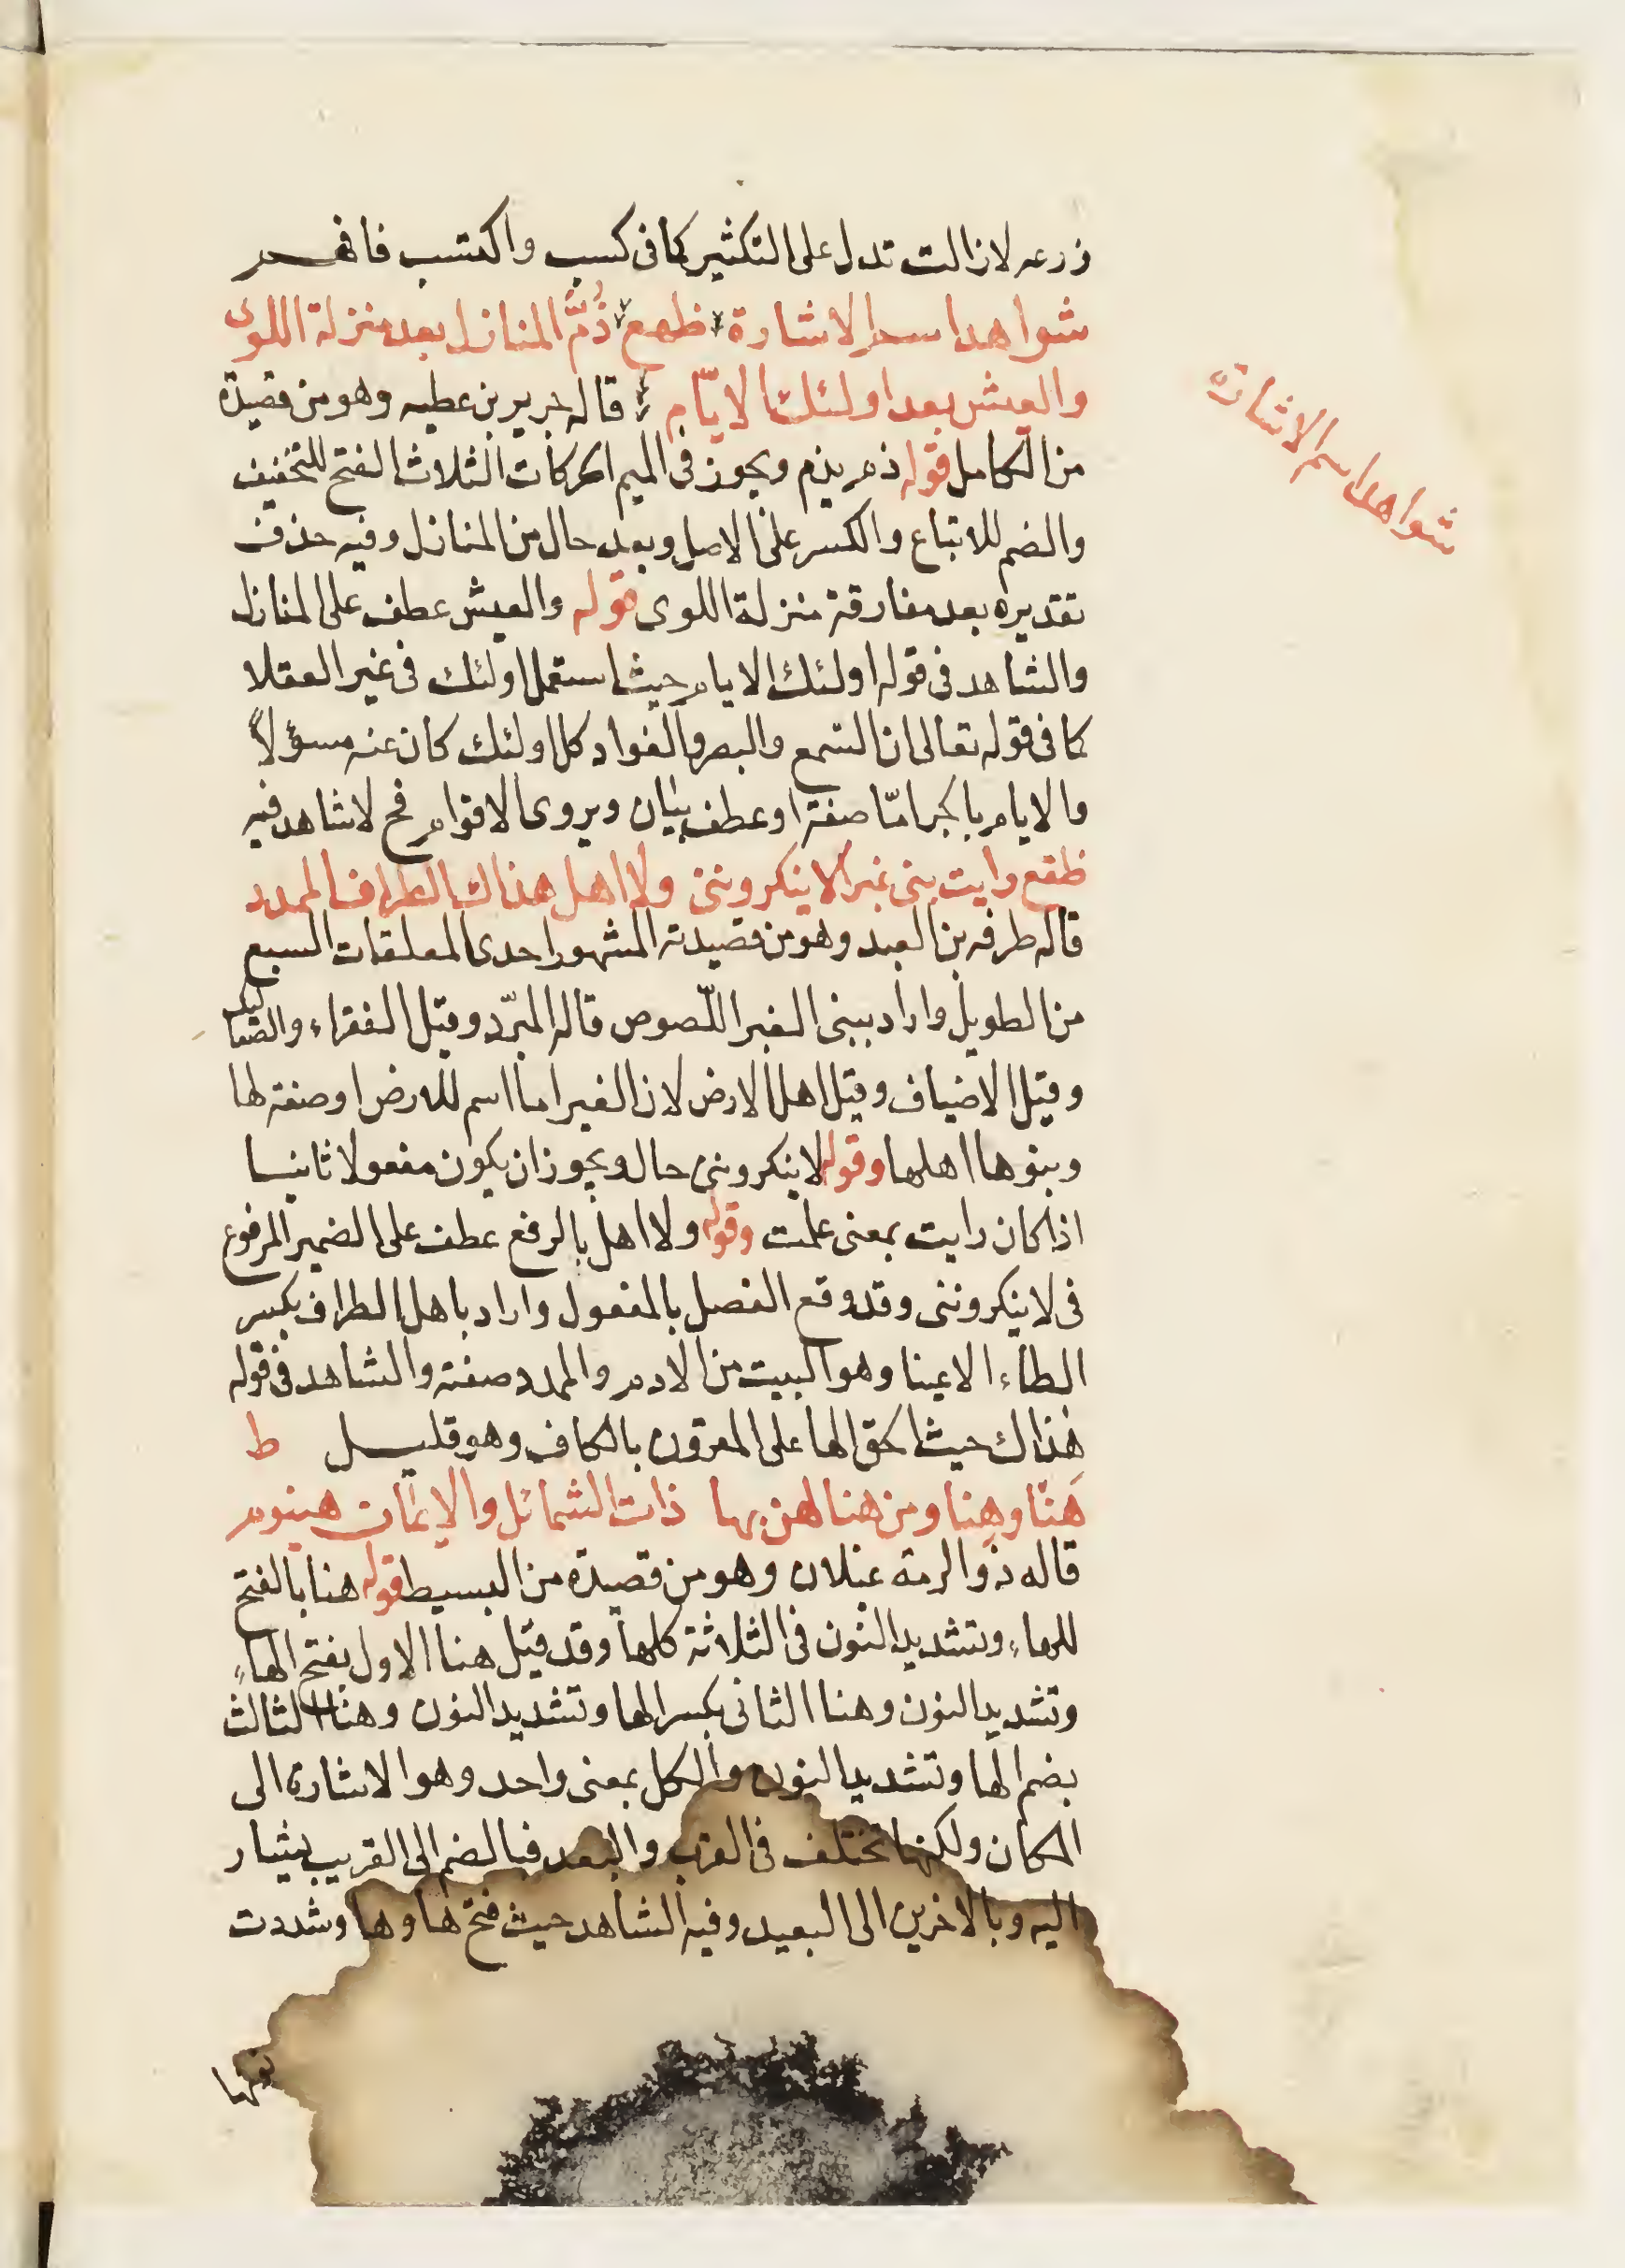 زرعه لان التا تدل على التكثير كما فى كسب واكتسب فافهم
شواهد اسم الاشارة ظهع ذُمَّ المنازل بعد منزلة اللوى
والعيش بعد اولئك الايّام قاله جرير بن عطيه وهو من قصيدة
من الكامل قوله ذم يذم ويجوز فى الميم الحركات الثلاث الفتح للتخفيف
والضم للاتباع والكسر على الاصل وبعد حال من المنازل وفيه حذف
تقديره بعد مفارقة منزلة اللوى قوله والعيش عطف على المنازل
والشاهد فى قوله اولئك الايام حيث استعمل اولئك فى غير العقلا
كما فى قوله تعالى ان السّمع والبصر والفواد كل اولئك كان عنه مسؤلاً
والايام بالجر امّا صفة او عطف بيان ويروى الاقوام فح لا شاهد فيه
ظقع رايت بنى غبرا لا ينكروننى ولا اهل هذاك الطراف الممدد
قاله طرفه بن العبد وهو من قصيدته المشهور احدى المعلقات السبع
من الطويل واراد ببنى الغبرا اللّصوص قاله المبرّد وقيل الفقراء والصعاليك
وقيل الاضياف وقيل اهل الارض لان الغبرا اما اسم للارض او صفة لها
وبنوها اهلها وقوله لا ينكروننى حال ويجوز ان يكون مفعولا ثانيا
اذا كان رايت بمعنى علمت وقوله ولا اهل بالرفع عطف على الضمير المرفوع
فى لا ينكروننى وقد وقع الفصل بالمفعول واراد باهل الطراف بكسر
الطاء الاغينا وهو البيت من الادم والممدد صفته والشاهد فى قوله
هذاك حيث الحق الها على المعرون بالكاف وهو قليل ط
هَنّا وهِنا ومن هنا لهن بها ذات الشمائل والايمان هينوم
قاله ذو الرمة غيلان وهو من قصيدة من البسيط قوله هنا بالفتح
للهاء وتشديد النون فى الثلاثة كلها وقد قيل هنا الاول بفتح الهاء
وتشديد النون وهنا الثانى بكسر الها وتشديد النون وهنا الثالث
بضم الها وتشديد النون والكل بمعنى واحد وهو الاشارة الى
المكان ولكنها تختلف فى القرب والبعد فبالضم الى القريب يشار
اليه وبالاخرين الى البعيد وفيه الشاهد حيث فتح هاوها وشددت
نونها
شواهد اسم الاشارة